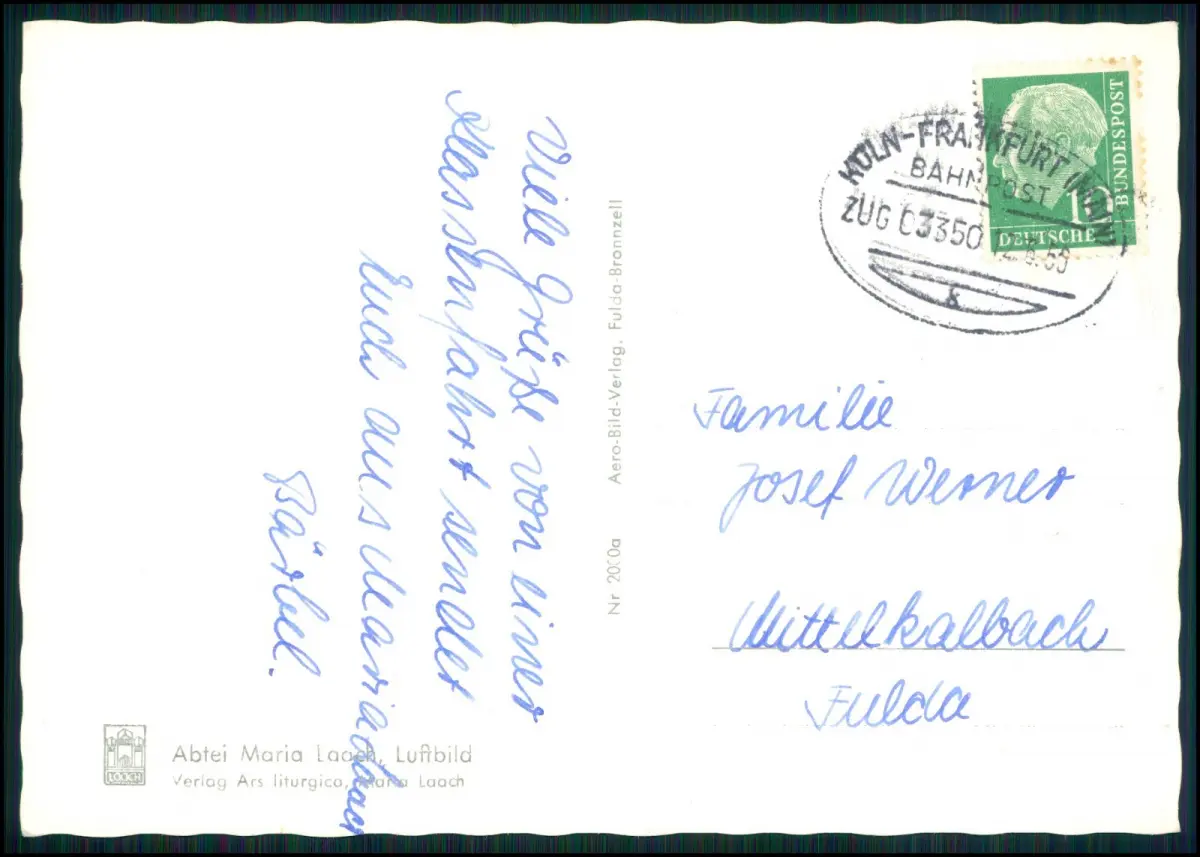 Viele Grüße von einer
Klassenfahrt sendet
Euch aus Maria Laach
Bärbel.
Nr 2000a Aero-Bild-Verlag, Fulda-Bronnzell
KÖLN-FRANKFURT (MAIN)
BAHNPOST
ZUG 03350
&
10
DEUTSCHE
BUNDESPOST
Familie
Josef Werner
Mittelkalbach
Fulda
LAACH
Abtei Maria Laach, Luftbild
Verlag Ars liturgica, Maria Laach